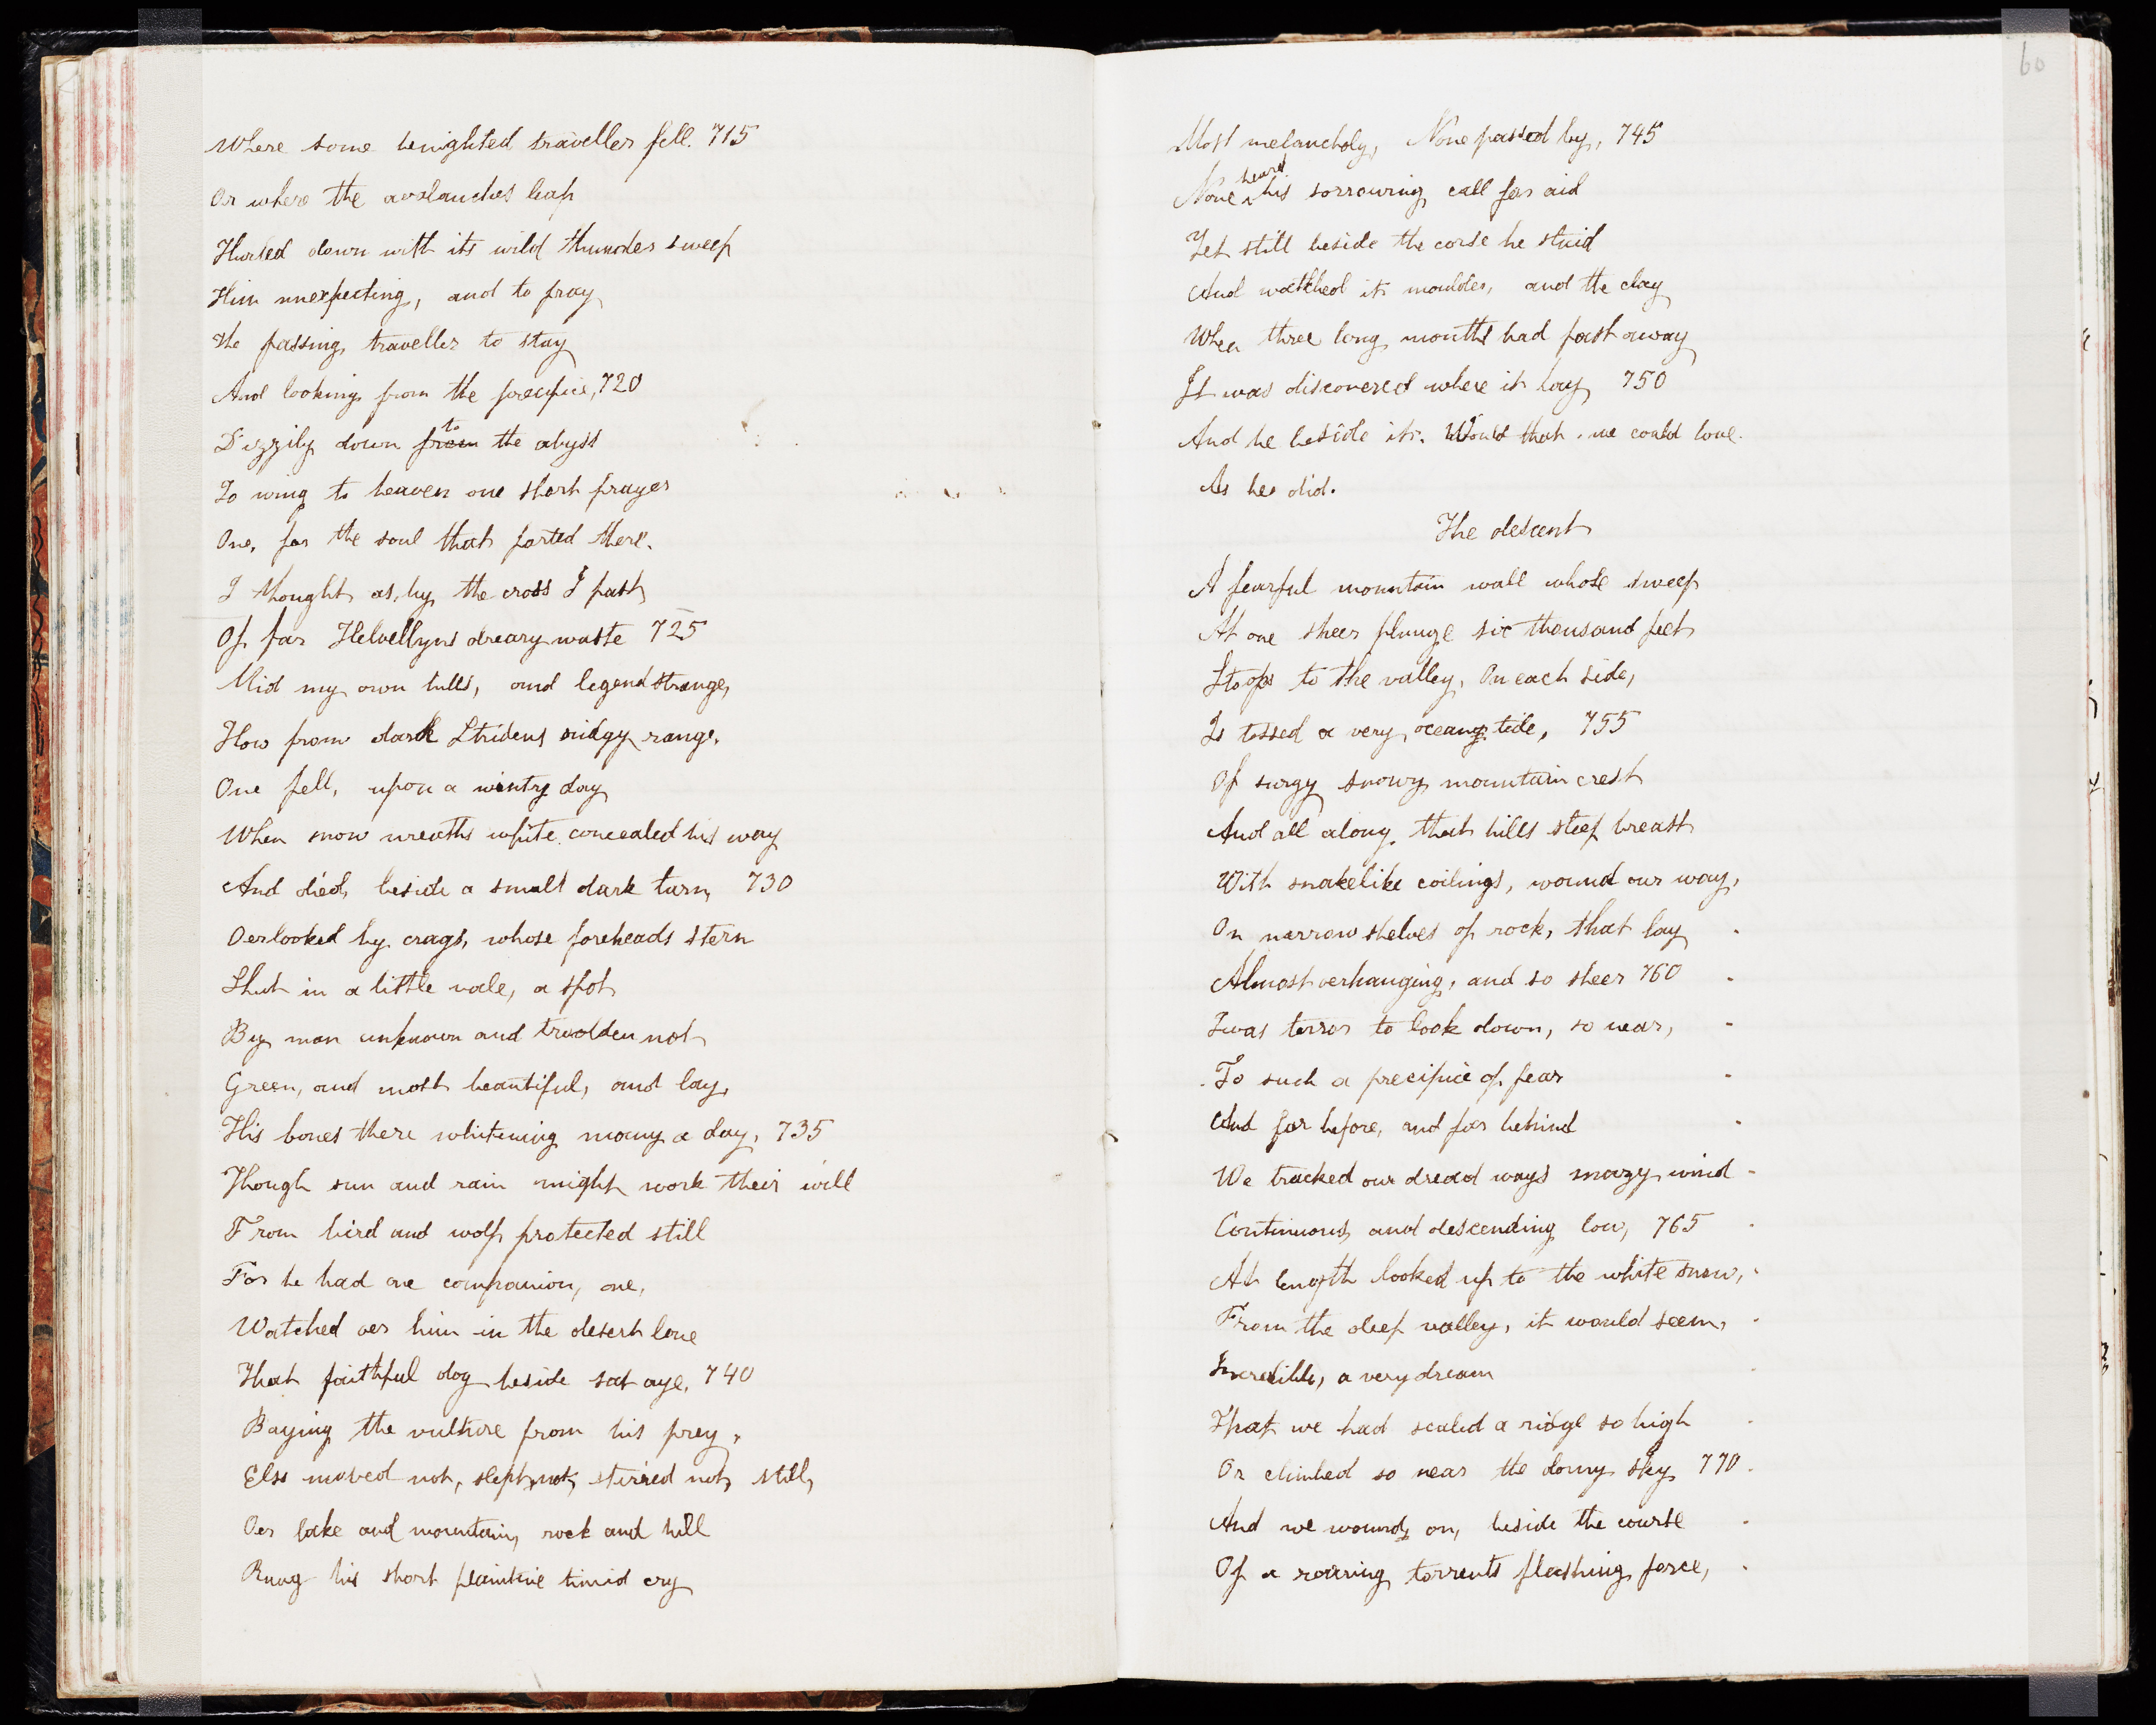 Where some benighted traveller fell. 715
Or where the avalanches leap
Hurled down with its wild thunder sweep
Him unexpecting, and to pray
The passing traveller to stay
And looking from the precipice, 720
Dizzily down from to the abyss
To wing to heaven one short prayer
One, for the soul that parted there.
I thought as, by the cross I past
Of far Helvellyns dreary waste 725
Mid my own hills, and legend strange,
How from dark Stridens ridgy range,
One fell, upon a wintry day
When snow wreaths white concealed his way
And died, beside a small dark tarn, 730
Oerlooked by crags, whose foreheads stern
Shut in a little vale, a spot
By man unknown and trodden not
Green, and most beautiful, and lay,
His bones there whitening many a day, 735
Though sun and rain might work their will
From bird and wolf protected still
For he had one companion, one,
Watched oer him in the desert lone
That faithful dog beside sat aye, 740
Baying the vulture from his prey,
Else moved not, slept not, stirred not, still,
Oer lake and mountain, rock and hill
Rung his short plaintive timid cry
60
Most melancholy, None passed by, 745
None heard his sorrowing call for aid
Yet still beside the corse he staid
And watched it moulder, and the clay
When three long months had past away
It was discovered where it lay 750
And he beside it. Would that we could love.
As he did.
The descent
A fearful mountain wall whose sweep
At one sheer plunge six thousand feet
Stoops to the valley, On each side,
Is tossed a very ocean tide, 755
Of surgy snowy mountain crest
And all along that hills steep breast
With snakelike coilings, wound our way,
On narrow shelves of rock, that lay
Almost verhanging, and so sheer 760
Twas terror to look down, so near,
To such a precipice of fear
And far before, and far behind
We tracked our dread ways mazy wind
Continuous, and descending low, 765
At length looked up to the white snow,
From the deep valley, it would seem,
Incredible, a very dream
That we had scaled a ridge so high
Or climbed so near the domy sky 770.
And we wound on, beside the course
Of a roaring torrents flashing force,